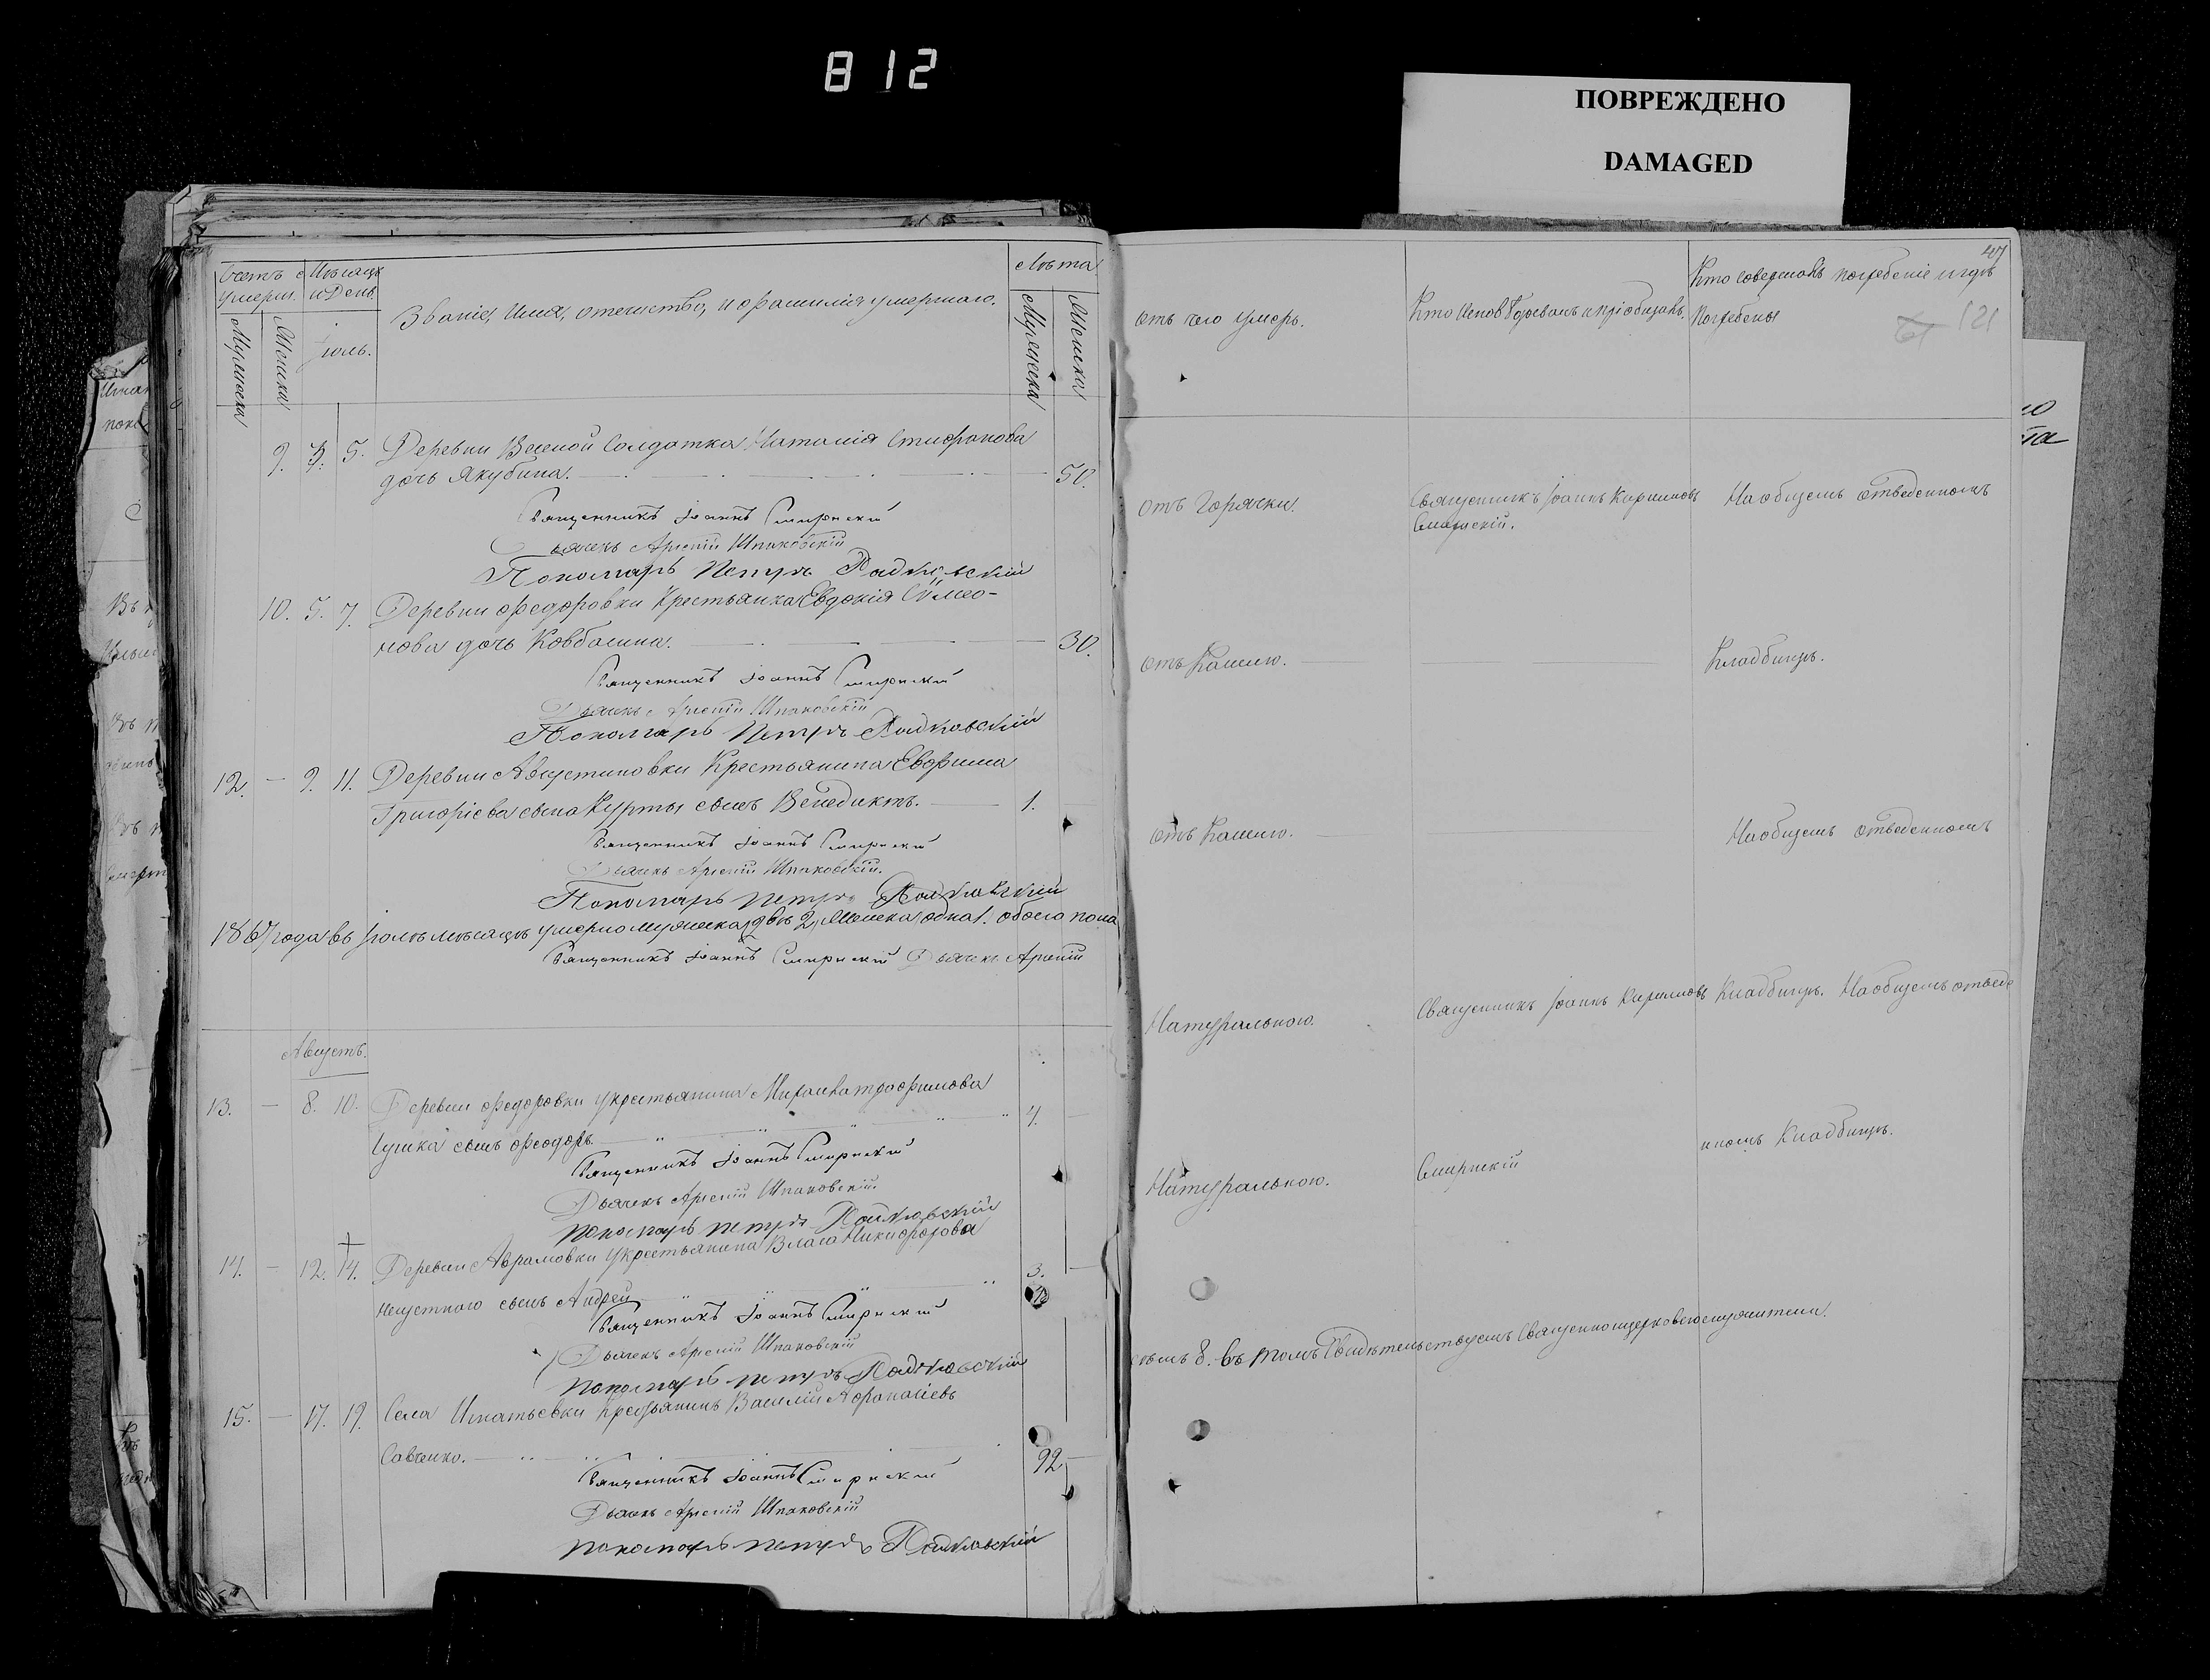 812
ПОВРЕЖДЕНО
DAMAGED
Счетъ умерш.
Мѣсяцъ и День.
Званіе, Имя, отечество, и фамилія умершаго.
Лѣта
Мужеска
Женска
Іюль.
Мужеска
Женска
9. 3. 5. Деревни Веселой Солдатка Наталія Стифанова
дочь Якубина. 50.
Священникъ Іоаннъ Смирнскій
Дьячекъ Арсеній Шпаковскій
Пономарь Петръ Радковскій
10. 5. 7. Деревни Федоровки Крестьянка Евдокія Симео-
нова дочь Ковбасина. 30.
Священникъ Іоаннъ Смирнскій
Дьячекъ Арсеній Шпаковскій
Пономарь Петръ Радковскій
12. — 9. 11. Деревни Августиновки Крестьянина Евфима
Григоріева сына Курты сынъ Венедиктъ. 1.
Священникъ Іоаннъ Смирнскій
Дьячекъ Арсеній Шпаковскій.
Пономарь Петръ Радковскій
1867 года въ Іюлѣ мѣсяцѣ умерло мужеска двѣ 2, Женска одна 1. обоего пола
Священникъ Іоаннъ Смирнскій Дьячекъ Арсеній
Августъ.
13. — 8. 10. Деревни Федоровки у крестьянина Мирона Трофимова
сынъ Феодоръ 4.
Священникъ Іоаннъ Смирнскій
Дьячекъ Арсеній Шпаковскій.
Пономарь Петръ Радковскій
14. — 12. 14. Деревни Аврамовки у крестьянина Власа Никифорова
сынъ Андрей 3.
Священникъ Іоаннъ Смирнскій
Дьячекъ Арсеній Шпаковскій
Пономарь Петръ Радковскій
15. — 17. 19. Села Игнатьевки крестьянинъ Василій Афанасіевъ
Савченко. 92
Священникъ Іоаннъ Смирнскій
Дьячекъ Арсеній Шпаковскій
Пономарь Петръ Радковскій
47
отъ чего умеръ.
Кто Исповѣдовалъ и пріобщалъ.
Кто совершалъ погребеніе и гдѣ
погребены
121
отъ Горячки.
Священникъ Іоаннъ Кириловъ
Смирнскій.
На общемъ отведенномъ
отъ Кашлю.
Кладбищѣ.
отъ Кашлю.
На общемъ отведенномъ
Натуральною.
Священникъ Іоаннъ Кириловъ
Кладбищѣ. На общемъ отведе
Натуральною.
Смирнскій
нномъ Кладбищѣ.
въ томъ Свидѣтельствуемъ Священноицерковнослужители.